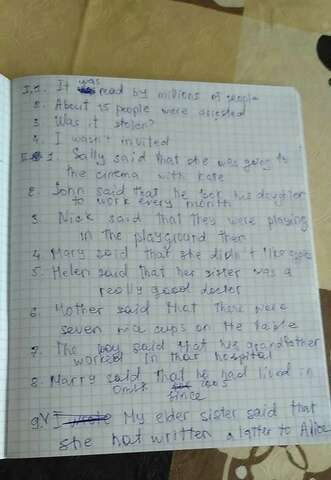 I.1. It was read by millions of people
2. About 15 people were arrested
3. Was it stolen?
4. I wasn't invited
II 1. Sally said that she was going to
the cinema with Kate
2. John said that he his daughter
to work every month
3. Nick said that they were playing
in the playground then
4. Mary said that she didn't like
5. Helen said that her sister was a
really good doctor
6. Mother said that there were
seven nice cups on the table
7. The boy said that his grandfather
worked in that hospital
8. Marry said that he had lived in
Omsk since 2005
9. My elder sister said that
she hat written a latter to Alice